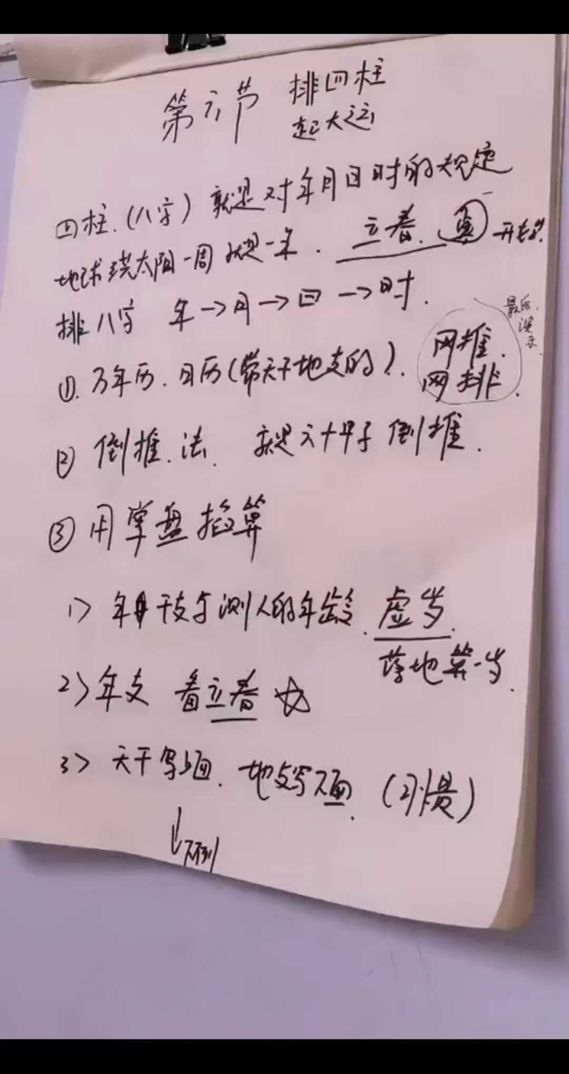 第六节 排四柱
起大运
四柱.(八字) 就是对年月日时的规定
地球绕太阳一周就是一年. 立春. 寅 开始.
排八字 年→月→日→时.
最后
①. 万年历. 日历(带天干地支的). 网推.
网排.
② 倒推.法. 就是六十甲子倒推.
③ 用掌盘掐算
1> 年干支与测人的年龄. 虚岁.
落地算一岁.
2> 年支 看立春 ☆
3> 天干写上面. 地支写下面. (习惯)
↓